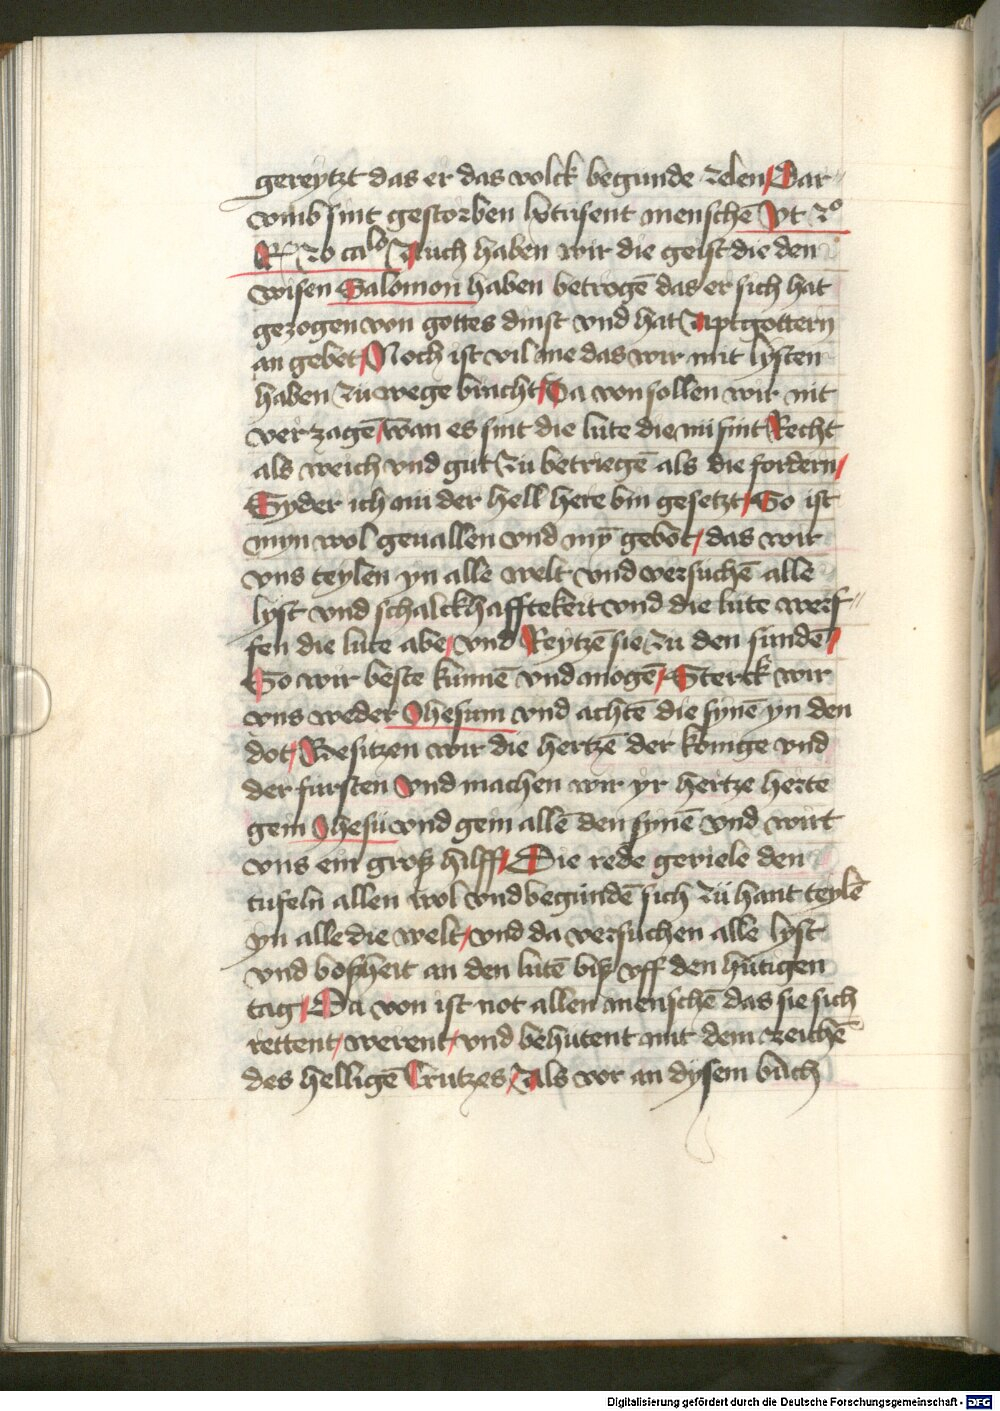 gereytzt das er das volck begunde zelen / Dar〃
vmb sint gestorben lxtusent mensche̅ Vt 2º
Rͫ 20 caͫlo Auch haben wir die geist die den
wisen Salomon haben betroge̅ das er sich hat
gezogen von gottes dinst vnd hat Aptgottern
an gebet / Noch ist vil me das wir mit lysten
haben zu wege bracht / Da von sollen wir nit
verzage̅ / wan es sint die lute die nu sint Recht
als weich vnd gut zu betriege̅ als die fordern /
Syder ich nu der hell here bin gesetzt / So ist
myn wol geuallen vnd my̅ gebot / das wir
vns teylen yn alle welt vnd versuche̅ alle
lyst vnd schalckhafftekeit vnd die lute werf〃
fen die lute abe / vnd Reytze̅ sie zu den sunde̅ /
So wir beste kunne̅ vnd moge̅ / Sterck wir
vns weder Jhesum vnd achte̅ die syne̅ yn den
dot / Besitzen wir die hertze̅ der konige vnd
der fursten Vnd machen wir yr hertze herte
gein Jhesu vnd gein alle̅ den syne̅ vnd wirt
vns ein groß hilff / Die rede geviele den
tufeln allen wol vnd begunde̅ sich zu hant teyle̅
yn alle die welt / vnd da versuchen alle lyst
vnd bosheit an den lute̅ biß vff den hutigen
tag / Da von ist not allen mensche̅ das sie sich
rettent / werent / vnd behutent mit dem zeiche̅
des hellige̅ Crutzes / Als vor an dysem buch
Digitalisierung gefördert durch die Deutsche Forschungsgemeinschaft - DFG